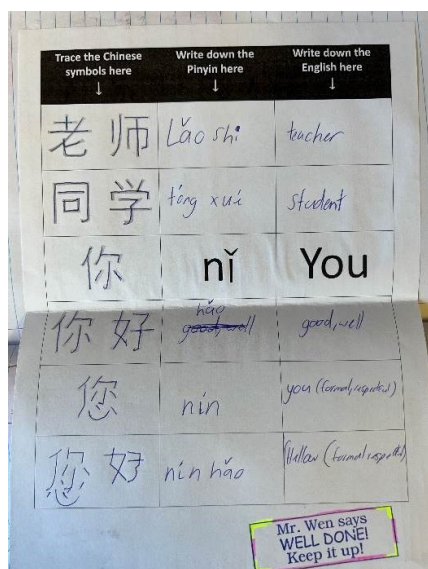 Trace the Chinese symbols here ↓ Write down the Pinyin here ↓ Write down the English here ↓
老师 Lǎo shi teacher
同学 tóng xué student
你 nǐ You
hǎo
你好 good, well good, well
您 nín you (formal, respectful)
您好 nín hǎo Hellow (formal, respectful)
Mr. Wen says
WELL DONE!
Keep it up!